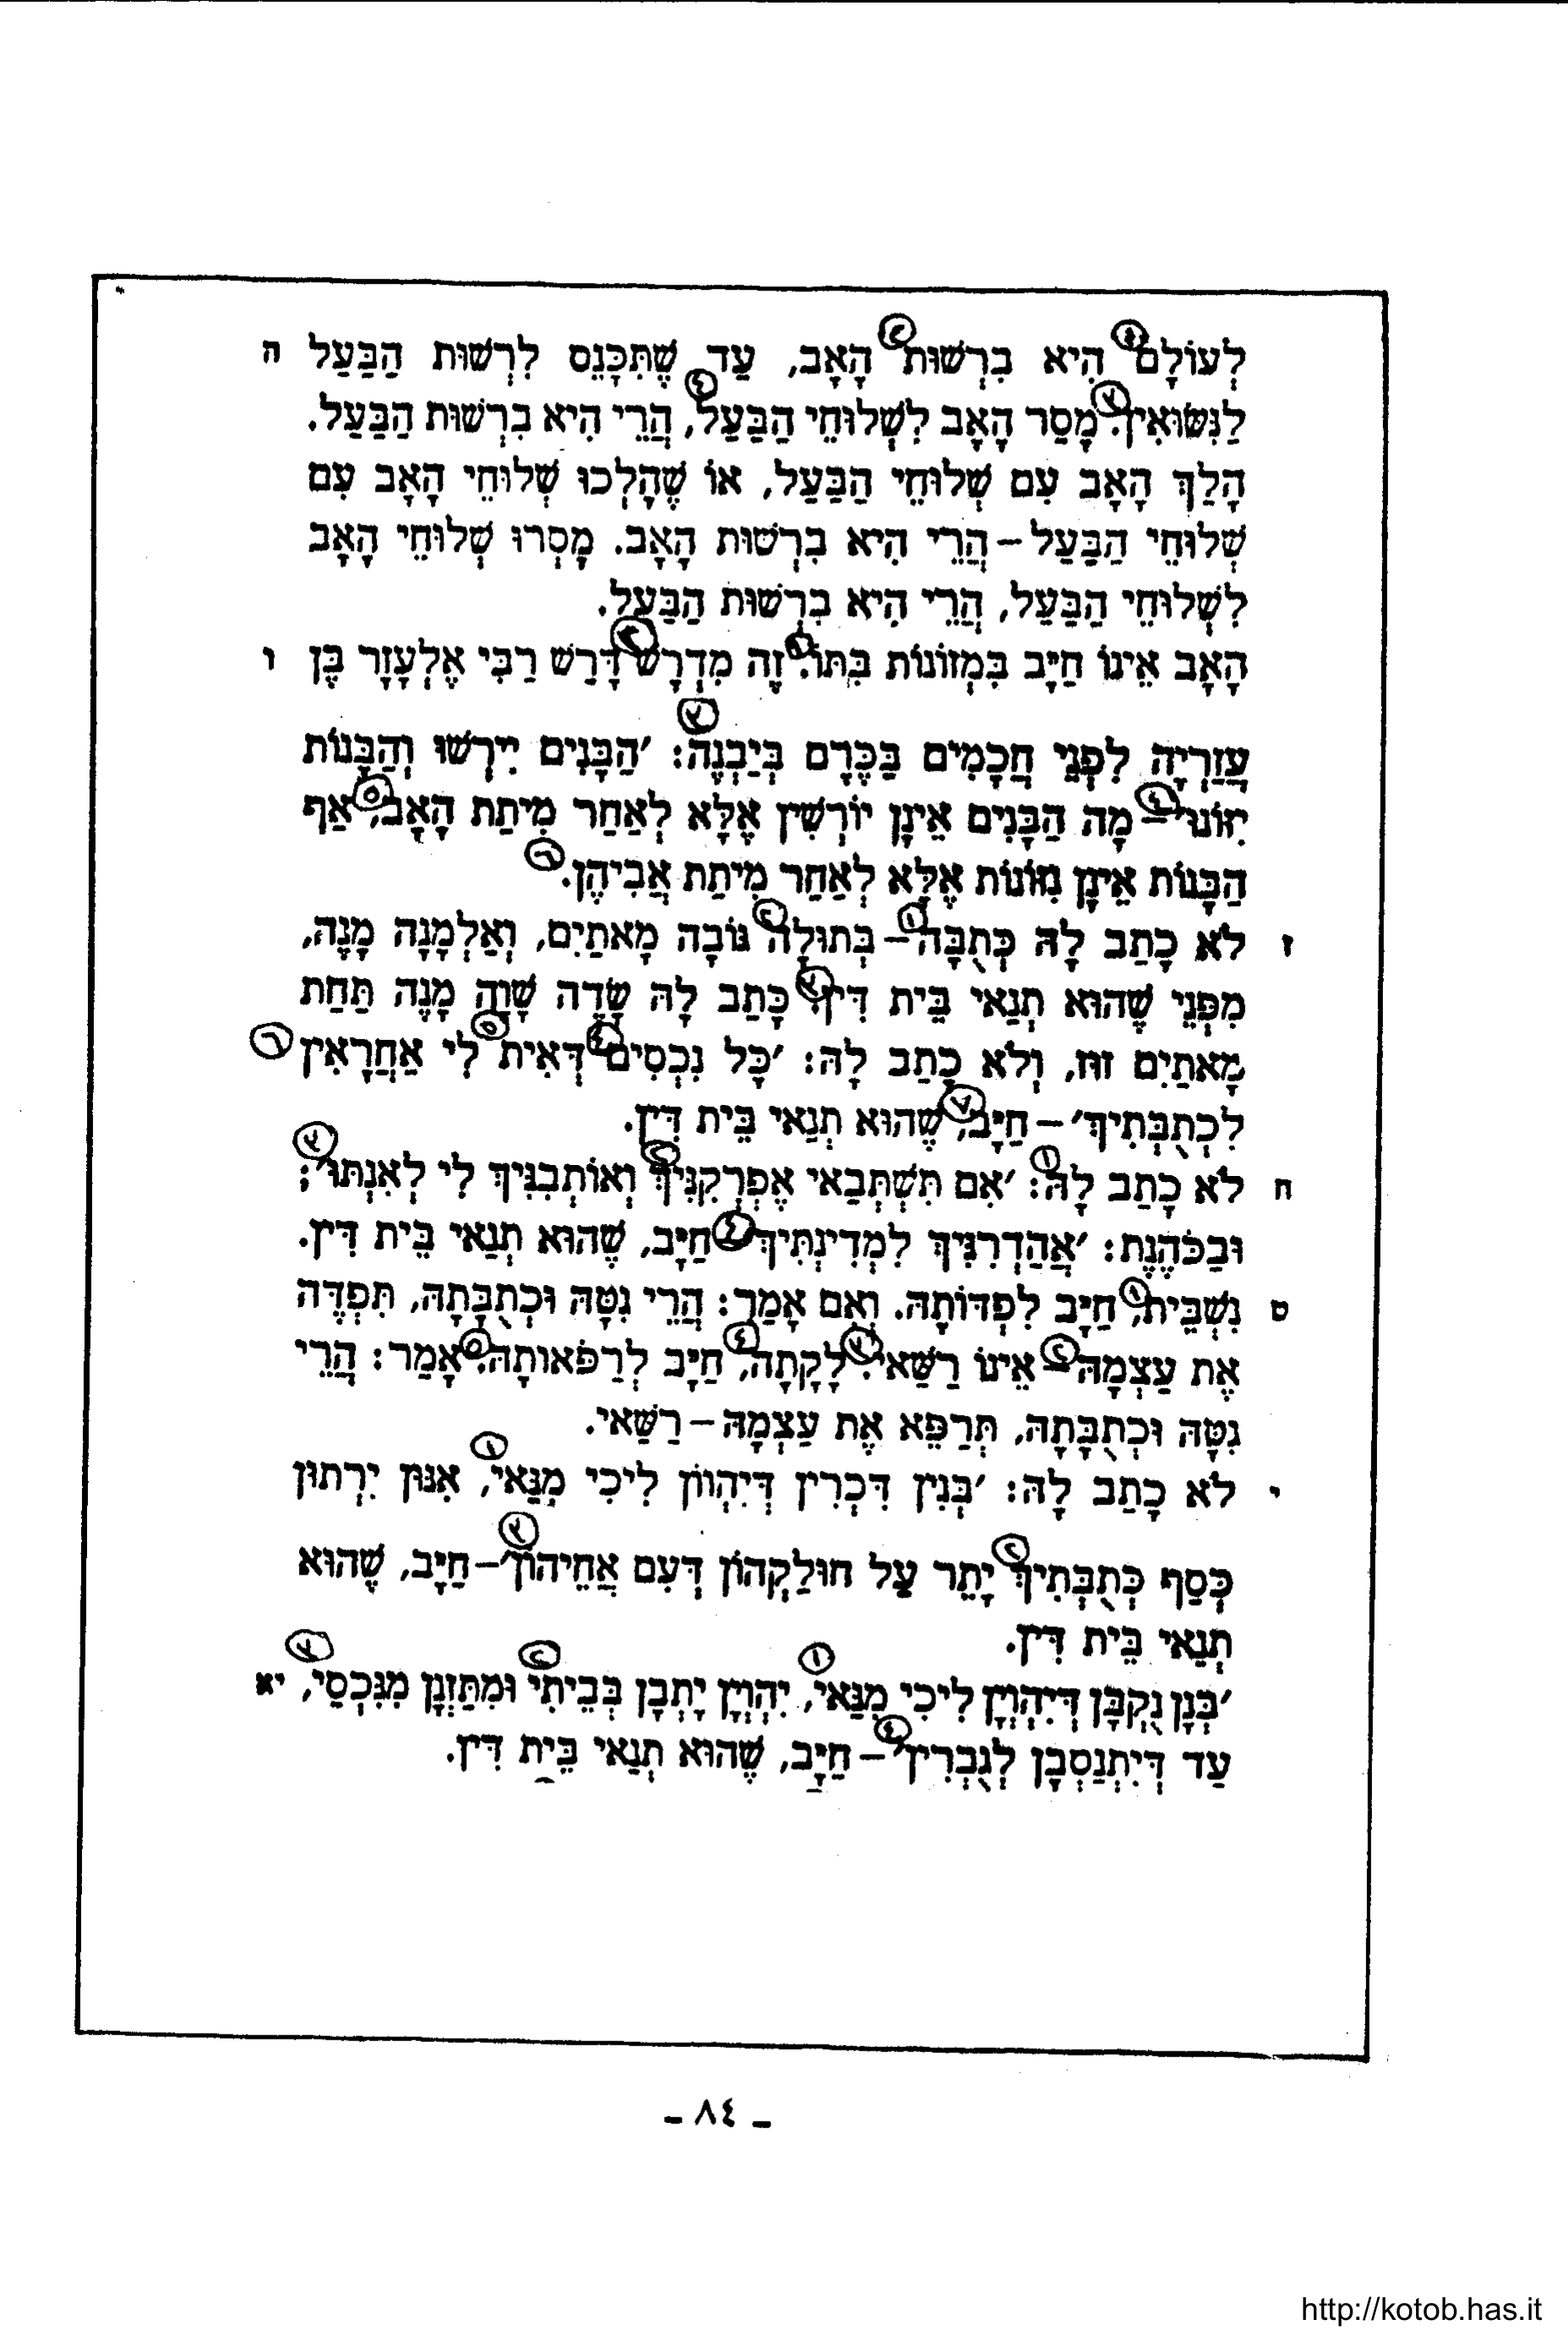 לְעוֹלָם① הִיא בִרְשׁוּת② הָאָב, עַד שֶׁתִּכָּנֵס לִרְשׁוּת הַבַּעַל ה
לַנִּשּׂוּאִין.③ מָסַר הָאָב לִשְׁלוּחֵי הַבַּעַל④, הֲרֵי הִיא בִרְשׁוּת הַבַּעַל.
הָלַךְ הָאָב עִם שְׁלוּחֵי הַבַּעַל, אוֹ שֶׁהָלְכוּ שְׁלוּחֵי הָאָב עִם
שְׁלוּחֵי הַבַּעַל – הֲרֵי הִיא בִרְשׁוּת הָאָב. מָסְרוּ שְׁלוּחֵי הָאָב
לִשְׁלוּחֵי הַבַּעַל, הֲרֵי הִיא בִרְשׁוּת הַבַּעַל.
הָאָב אֵינוֹ חַיָּב בִּמְזוֹנוֹת בִּתּוֹ.① זֶה מִדְרָשׁ② דָּרַשׁ רַבִּי אֶלְעָזָר בֶּן ו
עֲזַרְיָה לִפְנֵי חֲכָמִים בַּכֶּרֶם בְּיַבְנֶה③: ׳הַבָּנִים יִירְשׁוּ וְהַבָּנוֹת
יִזּוֹנוּ׳④ – מָה הַבָּנִים אֵינָן יוֹרְשִׁין אֶלָּא לְאַחַר מִיתַת הָאָב⑤, אַף
הַבָּנוֹת אֵינָן נִזּוֹנוֹת אֶלָּא לְאַחַר מִיתַת אֲבִיהֶן.⑥
ז לֹא כָתַב לָהּ כְּתֻבָּה① – בְּתוּלָה② גּוֹבָה מָאתַיִם, וְאַלְמָנָה מָנֶה,
מִפְּנֵי שֶׁהוּא תְנַאי בֵּית דִּין③. כָּתַב לָהּ שָׂדֶה שָׁוֶה מָנֶה תַּחַת
מָאתַיִם זוּז, וְלֹא כָתַב לָהּ: ׳כָּל נִכְסִים④ דְּאִית⑤ לִי אַחֲרָאִין⑥
לִכְתֻבְּתִיךְ׳ – חַיָּב⑦, שֶׁהוּא תְנַאי בֵּית דִּין.
ח לֹא כָתַב לָהּ①: ׳אִם תִּשְׁתְּבַאי אֶפְרְקִנִּיךְ② וְאוֹתְבִנִּיךְ לִי לְאִנְתּוּ׳③;
וּבַכֹּהֶנֶת: ׳אֲהַדְרִנִּיךְ לִמְדִינְתִּיךְ׳④ חַיָּב, שֶׁהוּא תְנַאי בֵּית דִּין.
ט נִשְׁבֵּית①, חַיָּב לִפְדּוֹתָהּ. וְאִם אָמַר: הֲרֵי גִטָּהּ וּכְתֻבָּתָהּ, תִּפְדֶּה
אֶת עַצְמָהּ② – אֵינוֹ רַשַּׁאי③. לָקָתָה④, חַיָּב לְרַפֹּאותָהּ.⑤ אָמַר: הֲרֵי
גִטָּהּ וּכְתֻבָּתָהּ, תְּרַפֵּא אֶת עַצְמָהּ – רַשַּׁאי.
י לֹא כָתַב לָהּ: ׳בְּנִין דִּכְרִין דְּיִהְווֹן לִיכִי מִנַּאי①, אִנּוּן יִרְתוּן
כְּסַף כְּתֻבְּתִיךְ② יָתֵר עַל חוּלַקְהוֹן דְּעִם אֲחֵיהוֹן׳③ – חַיָּב, שֶׁהוּא
תְנַאי בֵּית דִּין.
׳בְּנָן נֻקְבָן דְּיִהְוְיָן לִיכִי מִנַּאי①, יִהְוְיָן יָתְבָן בְּבֵיתִי② וּמִתַּזְנָן מִנִּכְסַי③, יא
עַד דְּיִתְנַסְבָן לְגֻבְרִין׳④ – חַיָּב, שֶׁהוּא תְנַאי בֵּית דִּין.
– ٨٤ –
http://kotob.has.it